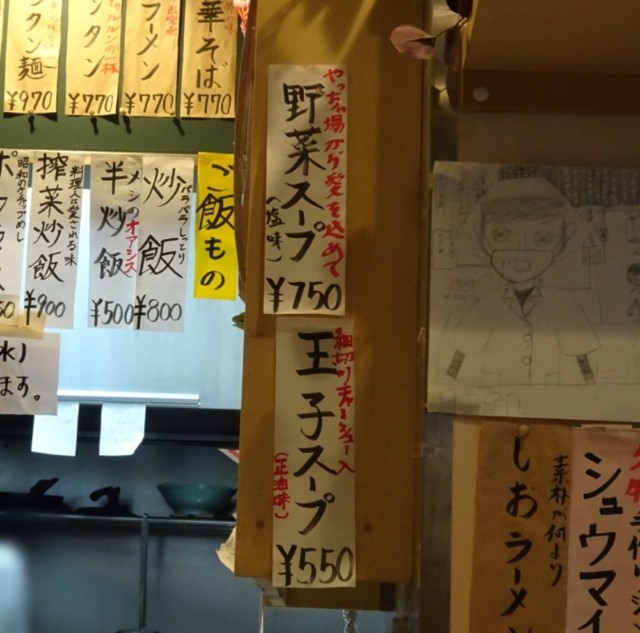 華そば
¥770
ラーメン
¥770
ンタン
¥770
ンタン麺
¥970
ご飯もの
パラパラしっとり
炒飯
¥800
メシのオアシス
半炒飯
¥500
料理人に愛される味
搾菜炒飯
¥900
昭和のケチャップめし
やっちゃ場から愛を込めて
野菜スープ
(塩味)
¥750
細切りチャーシュー入
玉子スープ
(正油味)
¥550
ます。
素朴が何より
しおラーメン
シュウマイ